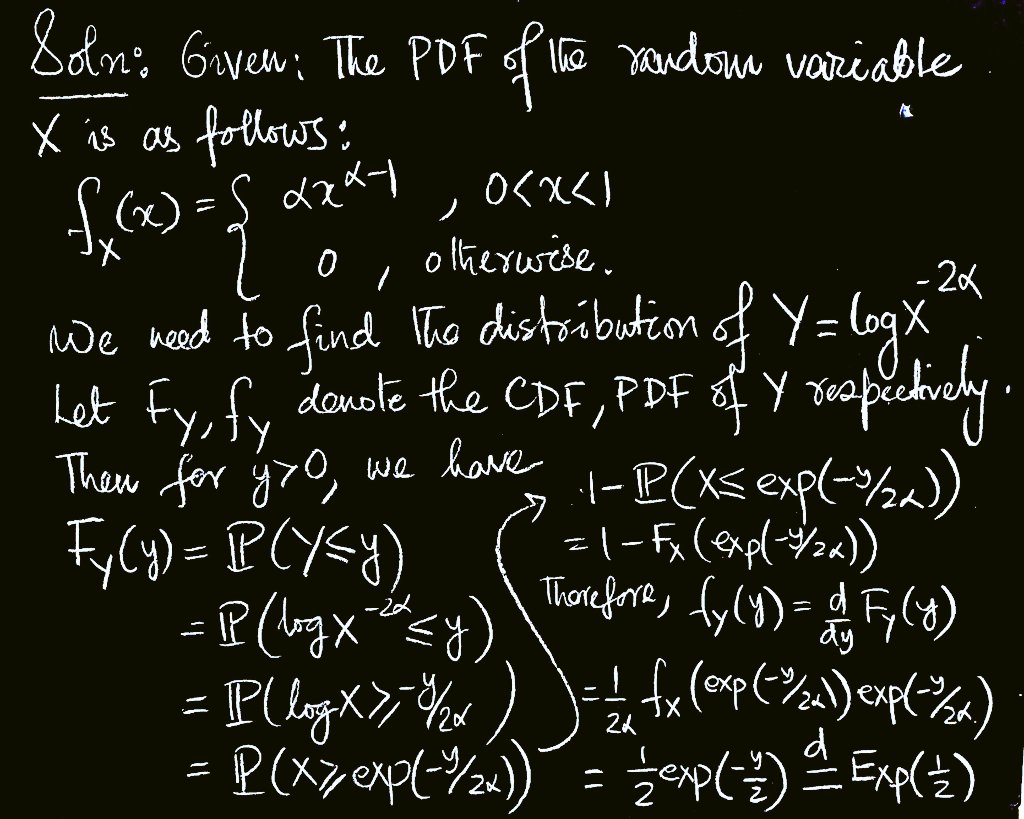 Soln: Given: The PDF of the random variable
X is as follows:
f_X(x) = { αx^{α-1} , 0<x<1
0 , otherwise.
We need to find the distribution of Y = log X^{-2α}
Let F_Y, f_Y denote the CDF, PDF of Y respectively.
Then for y>0, we have
F_Y(y) = ℙ(Y≤y)
= ℙ(log X^{-2α} ≤ y)
= ℙ(log X ≥ -y/2α)
= ℙ(X ≥ exp(-y/2α))
1 - ℙ(X ≤ exp(-y/2α))
= 1 - F_X(exp(-y/2α))
Therefore, f_Y(y) = d/dy F_Y(y)
= 1/2α f_X(exp(-y/2α)) exp(-y/2α)
= 1/2 exp(-y/2) =^d Exp(1/2)